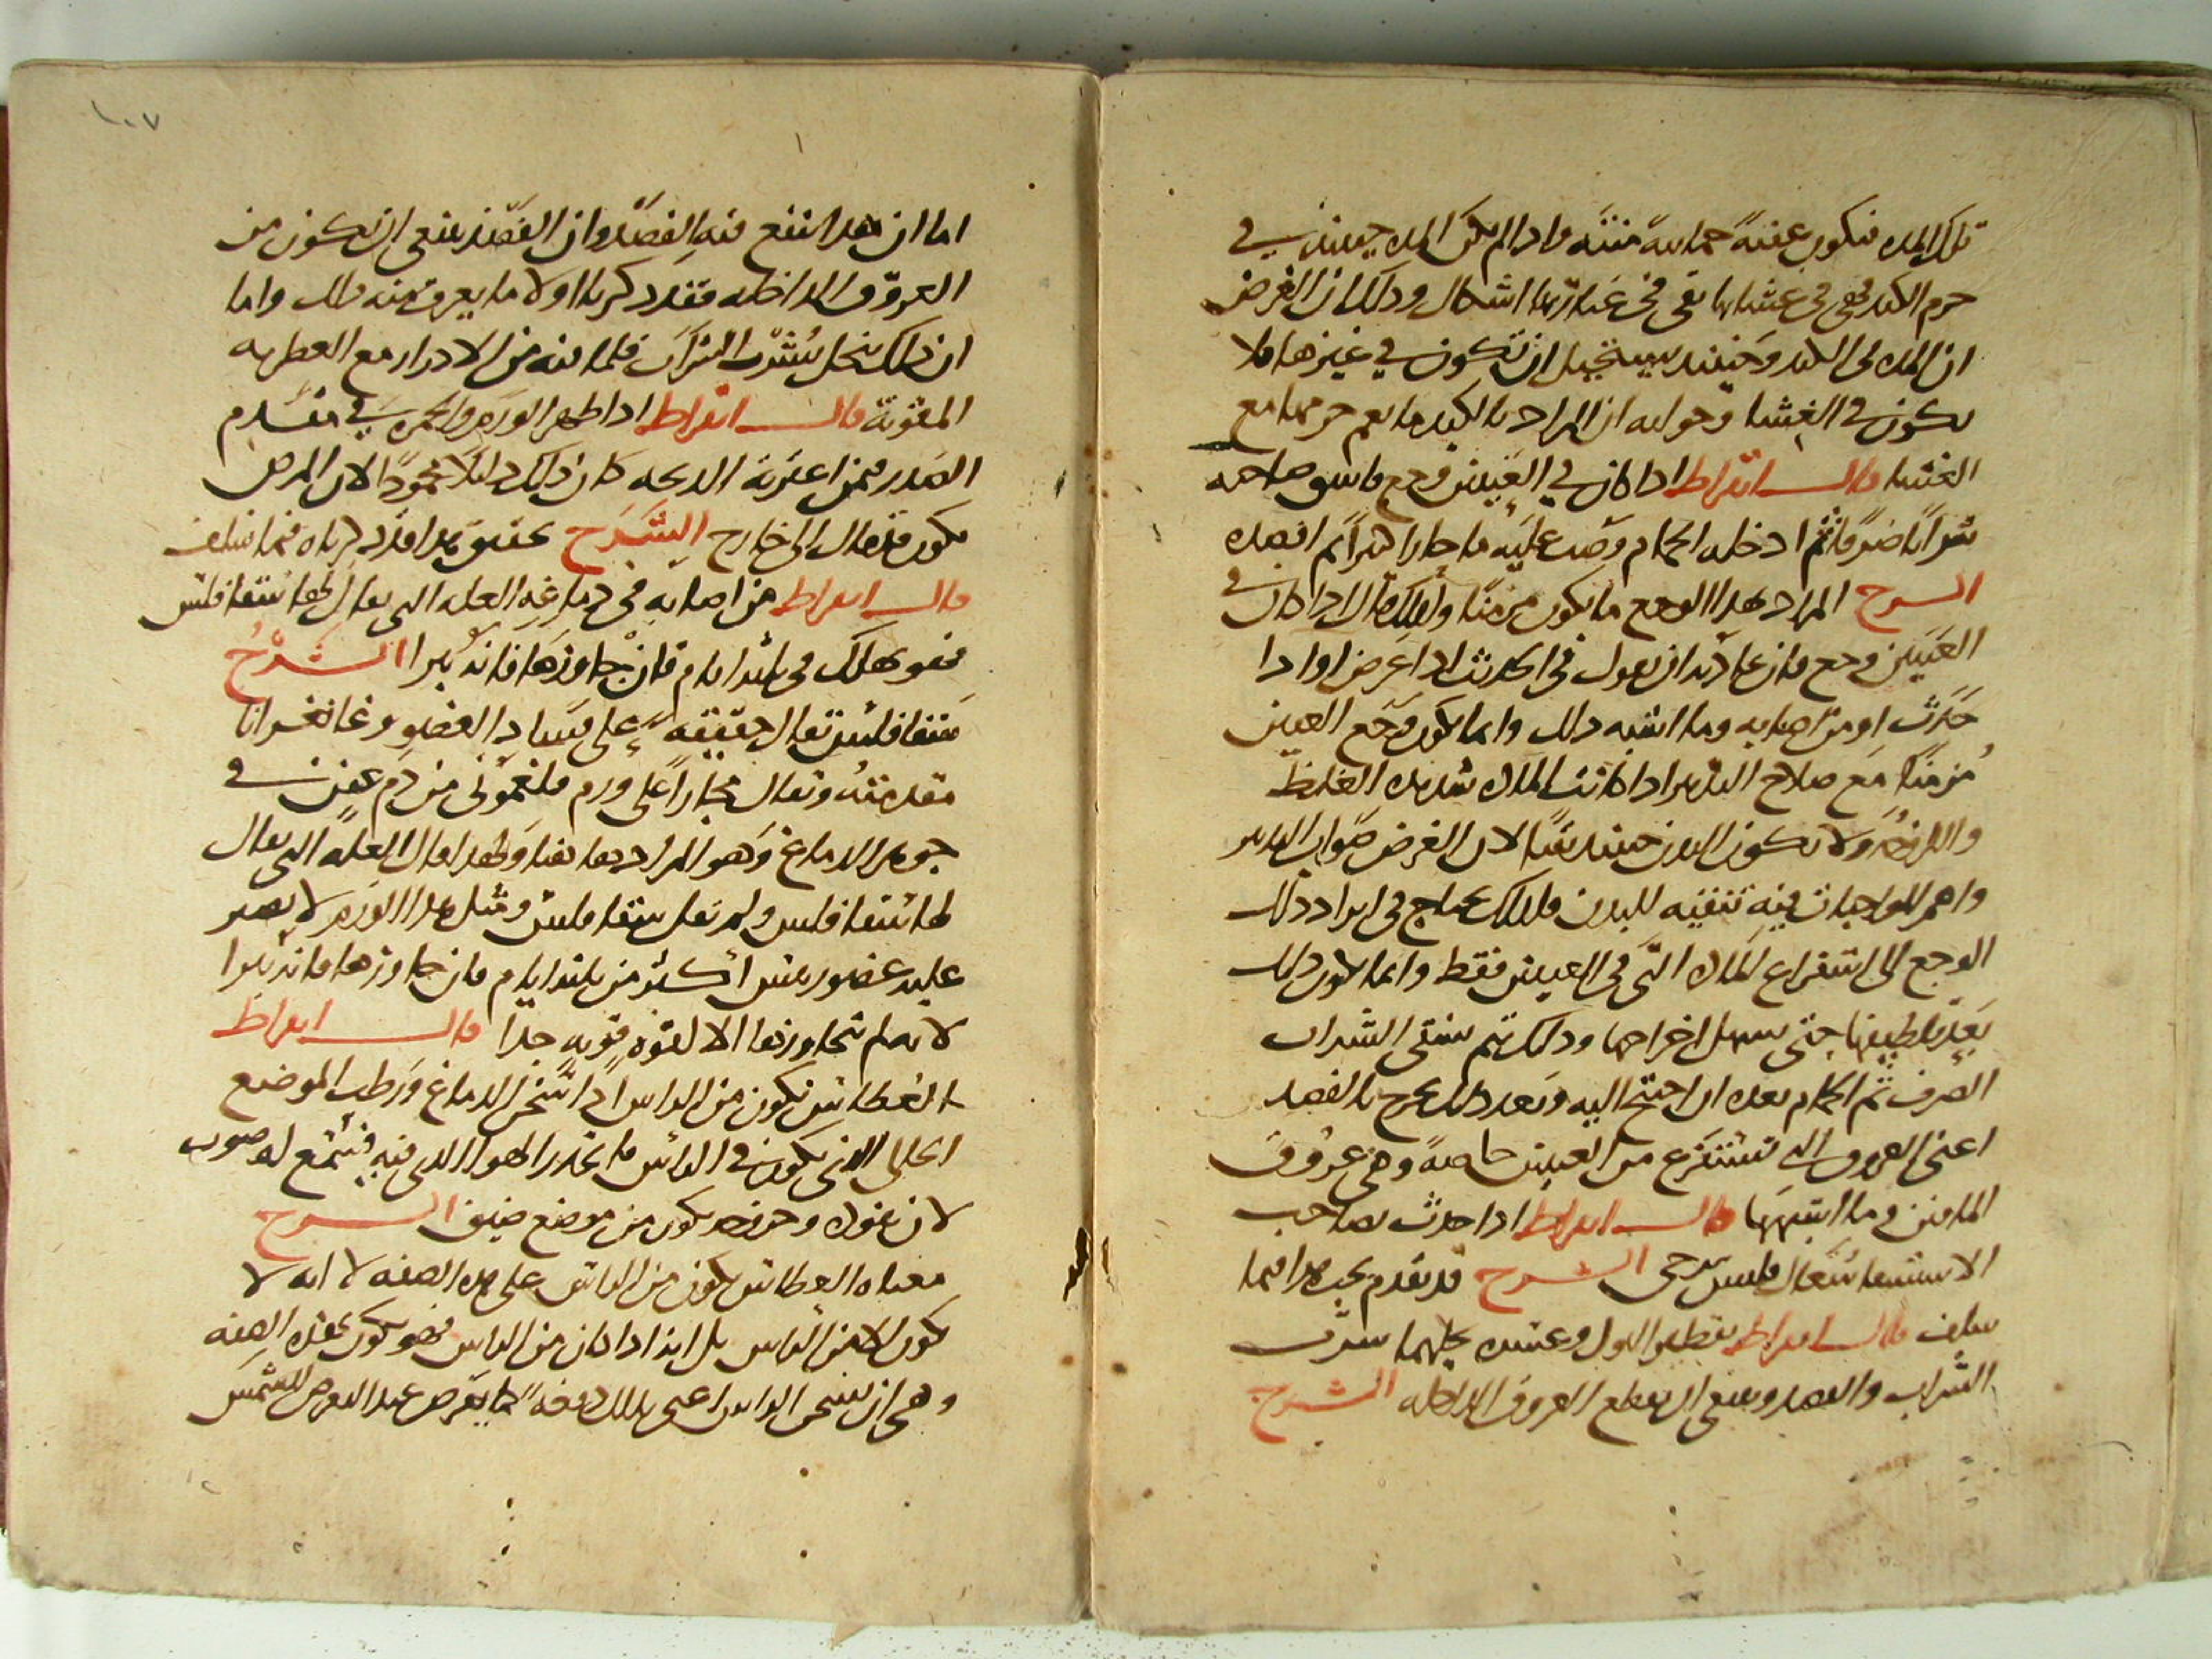 تلك المده فتكون عفنة حمايية منتنه واذا لم تكن المده حينئذ في
جرم الكبد فهي في غشايها بقي في عبارتهما اشكال وذلك ان الغرض
ان المده في الكبد وحينئذ يستحيل ان تكون في غيرها فلا
يكون في الغشا وجوابه ان المراد بالكبد ما يعم جرمها مع
الغشا قال ابقراط اذا كان في العينين وجع فاسق صاحبه
شرابا صرفا ثم ادخله الحمام وصب عليه ما حارا كثيرا ثم افصده
الشرح المراد بهذا الوجع ما يكون مزمنا ولذلك قال اذا كان في
العينين وجع فان عادته ان يقول في الحادث اذا عرض او اذا
حدث او من اصابه وما اشبه ذلك وانما يكون وجع العين
مزمنا مع صلاح التدبير اذا كانت المادة شديدة الغلظ
واللزوجة ولا يكون البدن حينئذ نقيا لان الغرض صواب التدبير
واهم الواجبات فيه تنقيه للبدن فلذلك يحتاج في ابراء ذلك
الوجع الى استفراغ المادة التي في العينين فقط وانما يكون ذلك
بعد تلطيفها حتى يسهل اخراجها وذلك يتم بسقي الشراب
الصرف ثم الحمام بعده ان احتيج اليه وبعد ذلك يخرج بالفصد
اعني العروق التي تستفرغ من العينين خاصة وهي عروق
الماقين وما اشبهها قال ابقراط اذا حدث بصاحب
الاستسقا سعال فليس يرجى الشرح قد تقدم بحث هذا فيما
سلف قال ابقراط تقطير البول وعسره يحلهما شرب
الشراب والفصد وينبغي ان يقطع العروق الداخله الشرح
١٠٧
اما ان هذا ينتفع فيه الفصد وان الفصد ينبغي ان يكون من
العروق الداخله فقد ذكرنا اولا ما يعرف منه ذلك واما
ان ذلك ينحل بشرب الشراب فلما فيه من الادرار مع العطريه
المقوية قال ابقراط اذا ظهر الورم والحمرة في مقدم
الصدر فيمن اعترته الذبحه كان ذلك دليلا محمودا لان المرض
يكون قد مال الى خارج الشرح تحقيق هذا قد ذكرناه فيما سلف
قال ابقراط من اصابه في دماغه العله التي يقال لها سفاقلس
فهو يهلك في ثلثة ايام فان جاوزها فانه يبرا الشرح
سفاقلس تقال حقيقه على فساد العضو وغانغرانا
مقدمته وتقال مجازا على ورم فلغموني من دم عفن في
جوهر الدماغ وهو المراد هاهنا ولهذا قال العله التي يقال
لها سفاقلس ولم يقل سفاقلس ومثل هذا الورم لا يصبر
عليه عضو رييس اكثر من ثلثة ايام فان جاوزها فانه يبرا
لانه لم يتجاوزها الا لقوه قويه جدا قال ابقراط
العطاس يكون من الراس اذا سخن الدماغ ورطب الموضع
الخالي الذي يكون في الراس فانحدر الهوا الذي فيه فيسمع له صوت
لان نفوذه وخروجه يكون من موضع ضيق الشرح
معناه العطاس يكون من الراس على هذه الصفه لا انه لا
يكون الا من الراس بل انه اذا كان من الراس فهو يكون بهذه الصفه
وهي ان يسخن الراس اعني بذلك دفعه كما يعرض عند التعرض للشمس